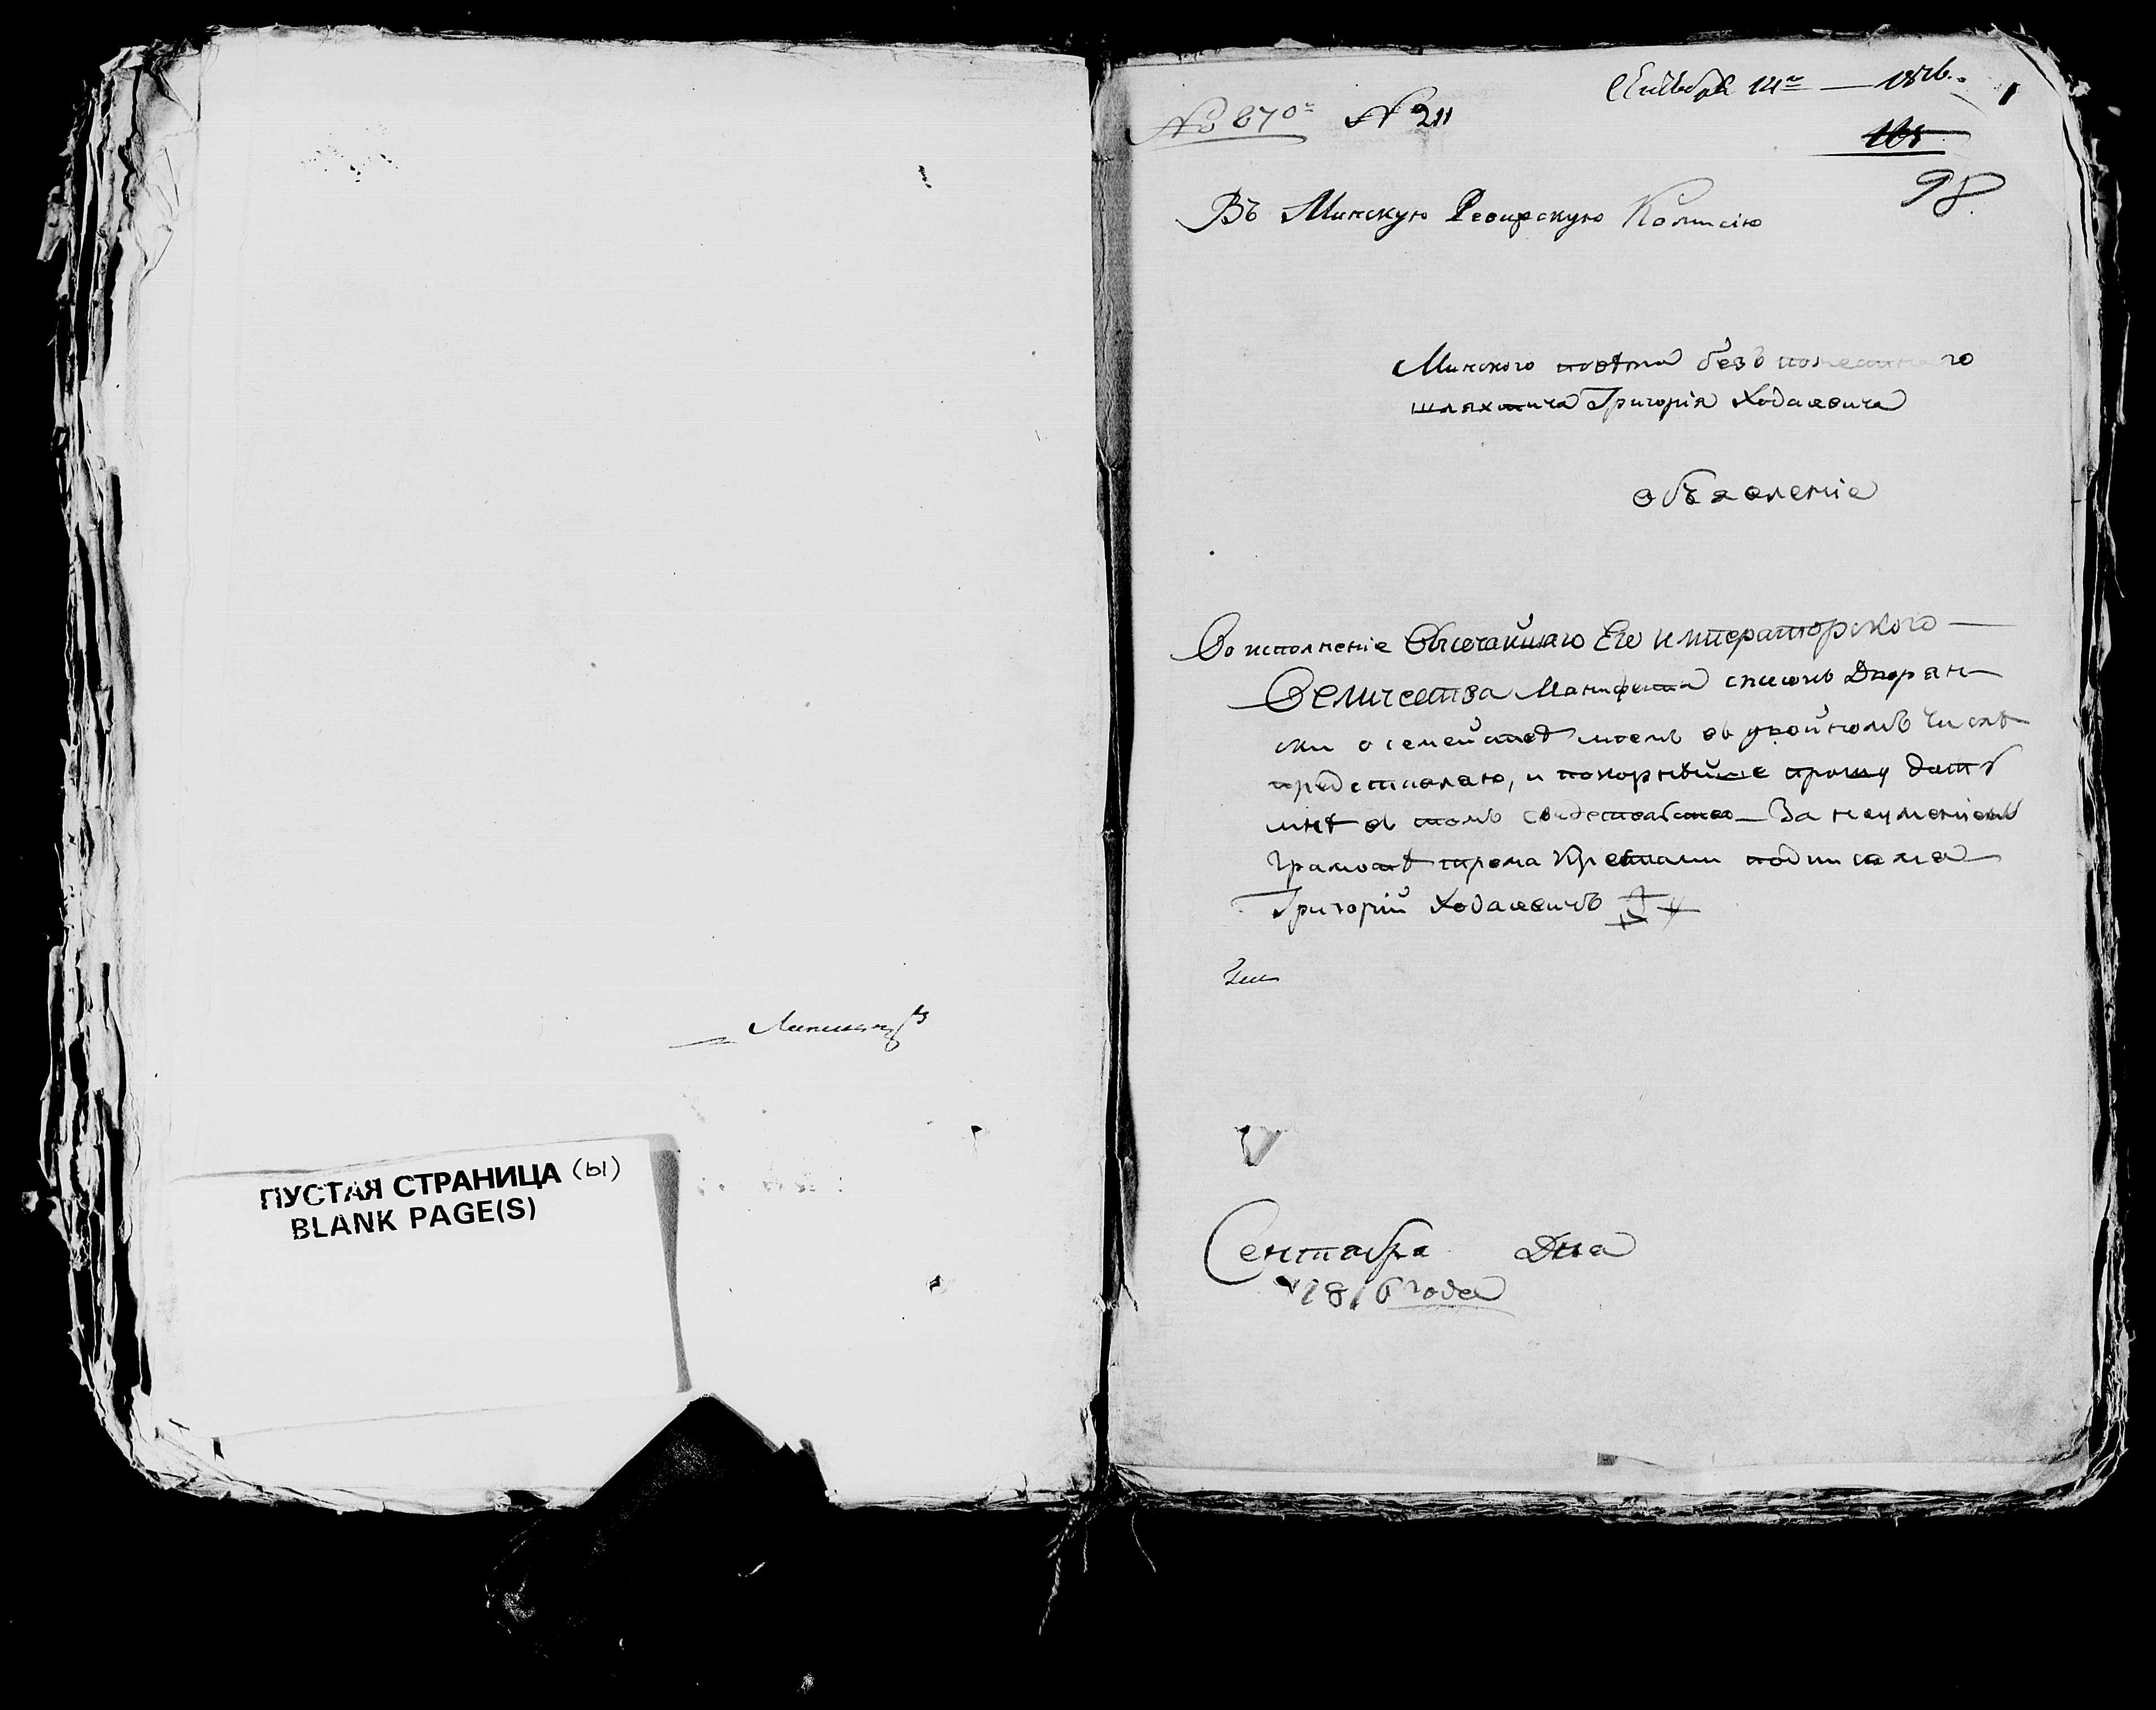 ПУСТАЯ СТРАНИЦА (ы)
BLANK PAGE(S)
14го — 1816.
№ 870 № 211
98
Въ Минскую Ревирскую Комисію
Минского повѣта безъ поместнаго
шляхтича Григорія Ходасевича
объявленіе
Во исполненіе Высочайшаго Его императорского
Величества Манифеста списокъ Дворян-
ски о семействѣ моемъ въ двойномъ числѣ
представляю, и покорнѣйше прошу дать
мнѣ въ томъ свидетельство — За неуменіемъ
Грамотѣ трема Крестами подписался
Григорій Ходасевичъ
Сентября Дня
1816 года